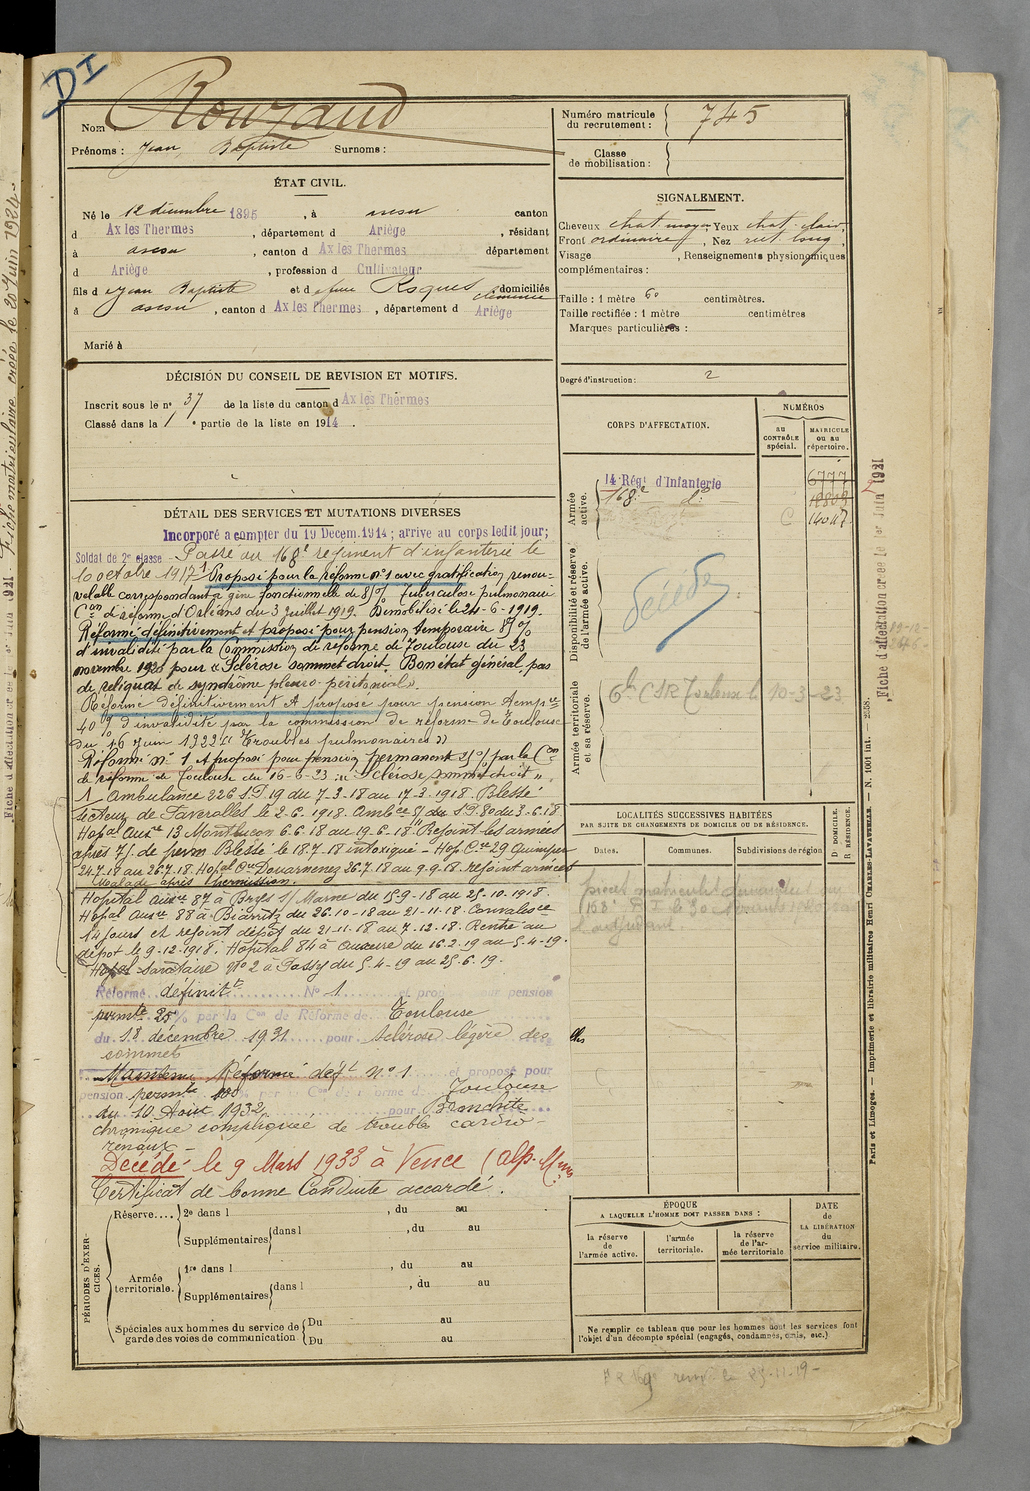 DI
Nom Rouzaud
Prénoms : Jean Baptiste Surnoms :
ÉTAT CIVIL.
Né le 12 décembre 1895, à ascou canton
d Ax les Thermes, département d Ariège, résidant
à ascou, canton d Ax les Thermes département
d Ariège, profession d Cultivateur
fils d Jean Baptiste et d domiciliés
à ascou, canton d Ax les Thermes, département d Ariège
Marié à
DÉCISION DU CONSEIL DE REVISION ET MOTIFS.
Inscrit sous le n° 37 de la liste du canton d Ax les Thermes
Classé dans la 1e partie de la liste en 1914.
DÉTAIL DES SERVICES ET MUTATIONS DIVERSES
Incorporé a compter du 19 Décem. 1914 ; arrive au corps ledit jour ;
Soldat de 2e classe - Passé au 168e régiment d'infanterie le
10 octobre 1917. Proposé pour la réforme n° 1 avec gratification renou-
velable correspondant à gêne fonctionnelle de 8% Tuberculose pulmonaire
Con de réforme d'Orléans du 3 Juillet 1919. Demobilisé le 24-6-1919.
Réformé définitivement et proposé pour pension temporaire 8%
d'invalidité par la Commission de réforme de Toulouse du 23
novembre 1920 pour « Sclérose sommet droit. Bon état général, pas
de reliquat de syndrôme pleuro-péritonial ».
Réformé définitivement et proposé pour pension tempre
40% d'invalidité par la commission de réforme de Toulouse
du 16 Juin 1922 « Troubles pulmonaires »
Réformé n° 1 et proposé pour pension permanente 25% par la Con
de réforme de Toulouse du 16-6-23 « Sclérose sommet droit ».
Ambulance 226 S.P. 19 du 7-3-18 au 17-3-1918. Blessé
secteur de Faverolles le 2-6-1918. Ambce 8/ du S.P. 80 du 3-6-18
Hopal Auxre 13 Montluçon 6.6.18 au 19-6-18. Rejoint les armées
après 7j. de perm Blessé le 18-7-18 intoxiqué - Hop. Cre 29 Quimper
24-7-18 au 26.7.18. Hopal Cre Douarnenez 26.7.18 au 9-9-18 rejoint armées
Malade après permission.
Hopital Auxre 87 à Brys s/ Marne du 15-9-18 au 25-10-1918.
Hopal Auxre 88 à Biarritz du 26-10-18 au 21-11-18. Convalesce
14 jours et rejoint dépôt du 21-11-18 au 7-12-18. Rentré au
dépôt le 9-12-1918. Hopital 84 à Auxerre du 16-2-19 au 5-4-19.
Hopal Sanitaire N° 2 à Passy du 5-4-19 au 25-6-19.
Réformé définitt N° 1 et proposé pour pension
permte 25% par la Con de Réforme de Toulouse
du 18 décembre 1931 pour sclérose légère des
sommets
Maintenu Réformé déft n° 1 et proposé pour
pension permte 100% par la Con de réforme de Toulouse
du 10 Août 1932 pour Bronchite
chronique compliquée de troubles cardio-
rénaux
Décédé le 9 Mars 1933 à Vence (Alp. Mmes
Certificat de bonne Conduite accordé.
PÉRIODES D'EXERCICES.
Réserve.... 2e dans l , du au
Supplémentaires dans l , du au
Armée territoriale. 1re dans l , du au
Supplémentaires dans l , du au
Spéciales aux hommes du service de garde des voies de communication Du au
Du au
Numéro matricule du recrutement : 745
Classe de mobilisation :
SIGNALEMENT.
Cheveux chat. moyen Yeux chat. clair,
Front ordinaire, Nez rect. long,
Visage , Renseignements physionomiques
complémentaires :
Taille : 1 mètre 60 centimètres.
Taille rectifiée : 1 mètre centimètres
Marques particulières :
Degré d'instruction : 2
CORPS D'AFFECTATION.
NUMÉROS
au CONTRÔLE spécial.
MATRICULE ou au répertoire.
Armée active.
14 Rég. d'Infanterie 6777
168e do
C 14047
Disponibilité et réserve de l'armée active.
Décédé
Armée territoriale et sa réserve.
10-3-23
LOCALITÉS SUCCESSIVES HABITÉES
PAR SUITE DE CHANGEMENTS DE DOMICILE OU DE RÉSIDENCE.
Dates.
Communes.
Subdivisions de région
D DOMICILE.
R RÉSIDENCE.
ÉPOQUE
A LAQUELLE L'HOMME DOIT PASSER DANS :
la réserve de l'armée active.
l'armée territoriale.
la réserve de l'armée territoriale
DATE de LA LIBÉRATION du service militaire.
Ne remplir ce tableau que pour les hommes dont les services font
l'objet d'un décompte spécial (engagés, condamnés, omis, etc.)
Paris et Limoges. — Imprimerie et librairie militaires Henri CHARLES-LAVAUZELLE. — N. 1001 int. — 2-58.
Fiche d'affectation créée le 1er Juin 1921
Fiche matriculaire créée le 20 Juin 1924